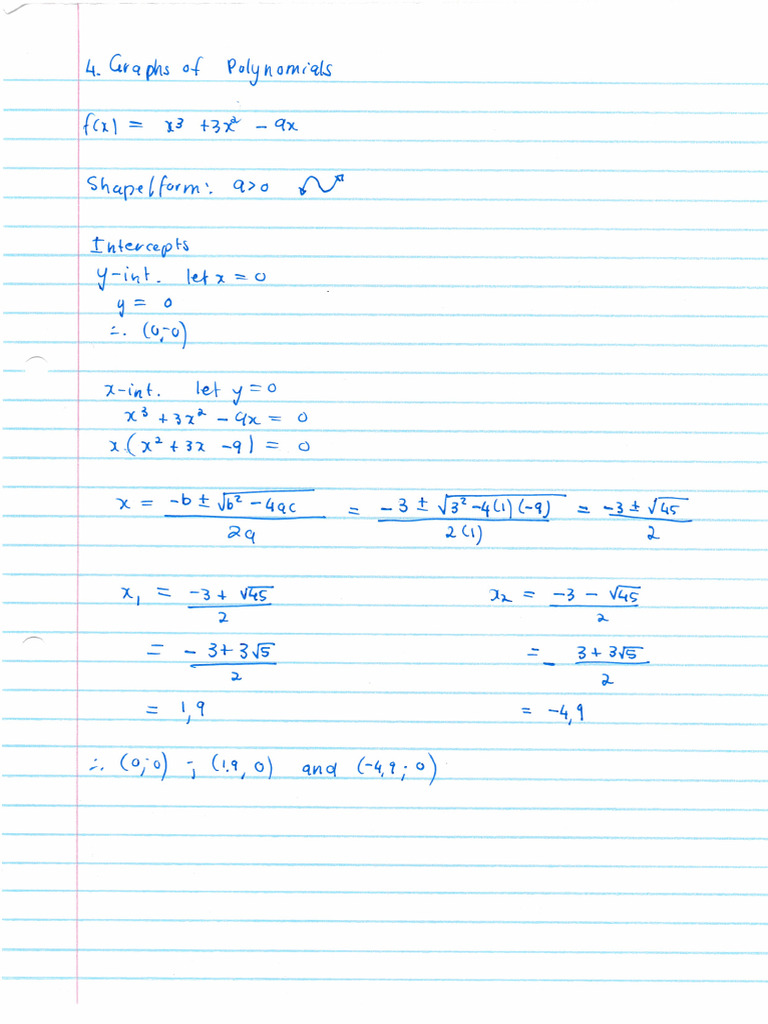 4. Graphs of Polynomials
f(x) = x³ + 3x² - 9x
Shape/form: a>0
Intercepts
y-int. let x = 0
y = 0
∴ (0;0)
x-int. let y = 0
x³ + 3x² - 9x = 0
x(x² + 3x - 9) = 0
x = (-b ± √(b² - 4ac))/2a = (-3 ± √(3² - 4(1)(-9)))/2(1) = (-3 ± √45)/2
x₁ = (-3 + √45)/2 x₂ = (-3 - √45)/2
= (-3 + 3√5)/2 = -(3 + 3√5)/2
= 1,9 = -4,9
∴ (0;0) ; (1.9, 0) and (-4,9; 0)